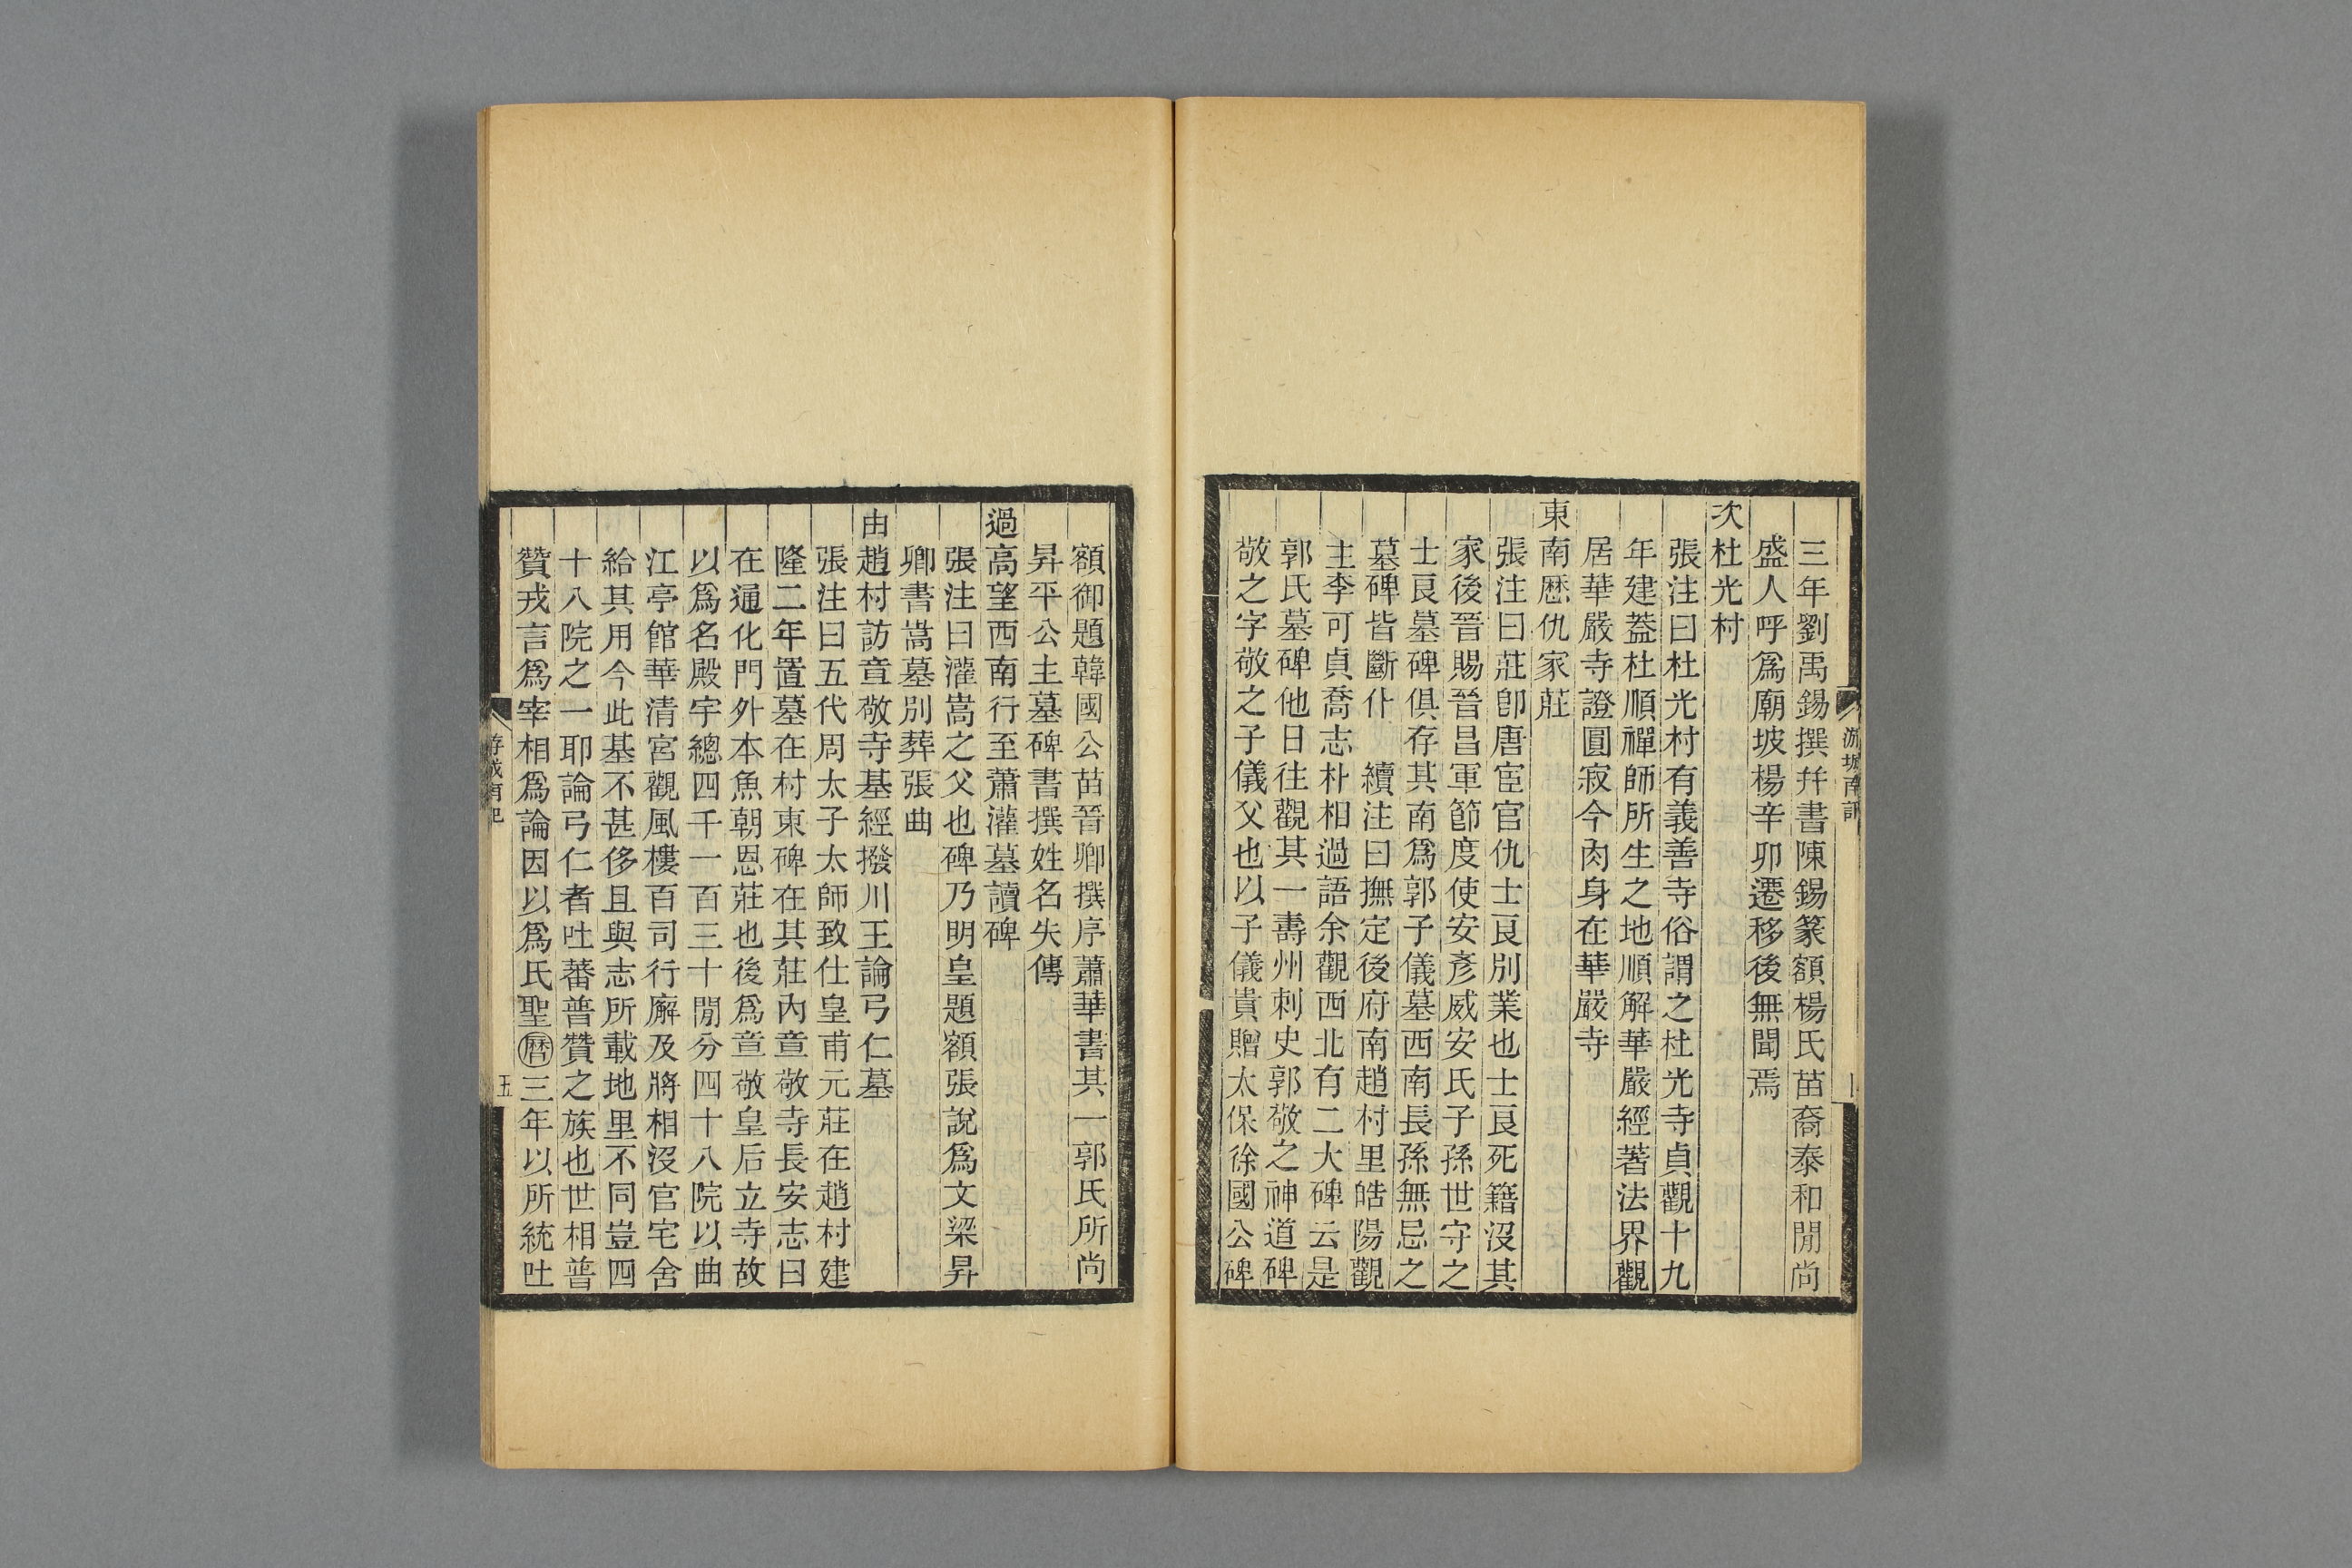 三年劉禹錫撰幷書陳錫篆額楊氏苗裔泰和閒尚
盛人呼爲廟坡楊辛卯遷移後無聞焉
次杜光村
張注曰杜光村有義善寺俗謂之杜光寺貞觀十九
年建葢杜順禪師所生之地順解華嚴經著法界觀
居華嚴寺證圓寂今肉身在華嚴寺
東南歷仇家莊
張注曰莊卽唐宦官仇士良別業也士良死籍沒其
家後晉賜晉昌軍節度使安彥威安氏子孫世守之
士良墓碑俱存其南爲郭子儀墓西南長孫無忌之
墓碑皆斷仆　續注曰撫定後府南趙村里皓陽觀
主李可貞喬志朴相過語余觀西北有二大碑云是
郭氏墓碑他日往觀其一壽州刺史郭敬之神道碑
敬之字敬之子儀父也以子儀貴贈太保徐國公碑
額御題韓國公苗晉卿撰序蕭華書其一郭氏所尚
昇平公主墓碑書撰姓名失傳
過高望西南行至蕭灌墓讀碑
張注曰灌嵩之父也碑乃明皇題額張說爲文梁昇
卿書嵩墓別葬張曲
由趙村訪章敬寺基經撥川王論弓仁墓
張注曰五代周太子太師致仕皇甫元莊在趙村建
隆二年置墓在村東碑在其莊內章敬寺長安志曰
在通化門外本魚朝恩莊也後爲章敬皇后立寺故
以爲名殿宇總四千一百三十閒分四十八院以曲
江亭館華清宮觀風樓百司行廨及將相沒官宅舍
給其用今此基不甚侈且與志所載地里不同豈四
十八院之一耶論弓仁者吐蕃普贊之族也世相普
贊戎言爲宰相爲論因以爲氏聖曆三年以所統吐
五